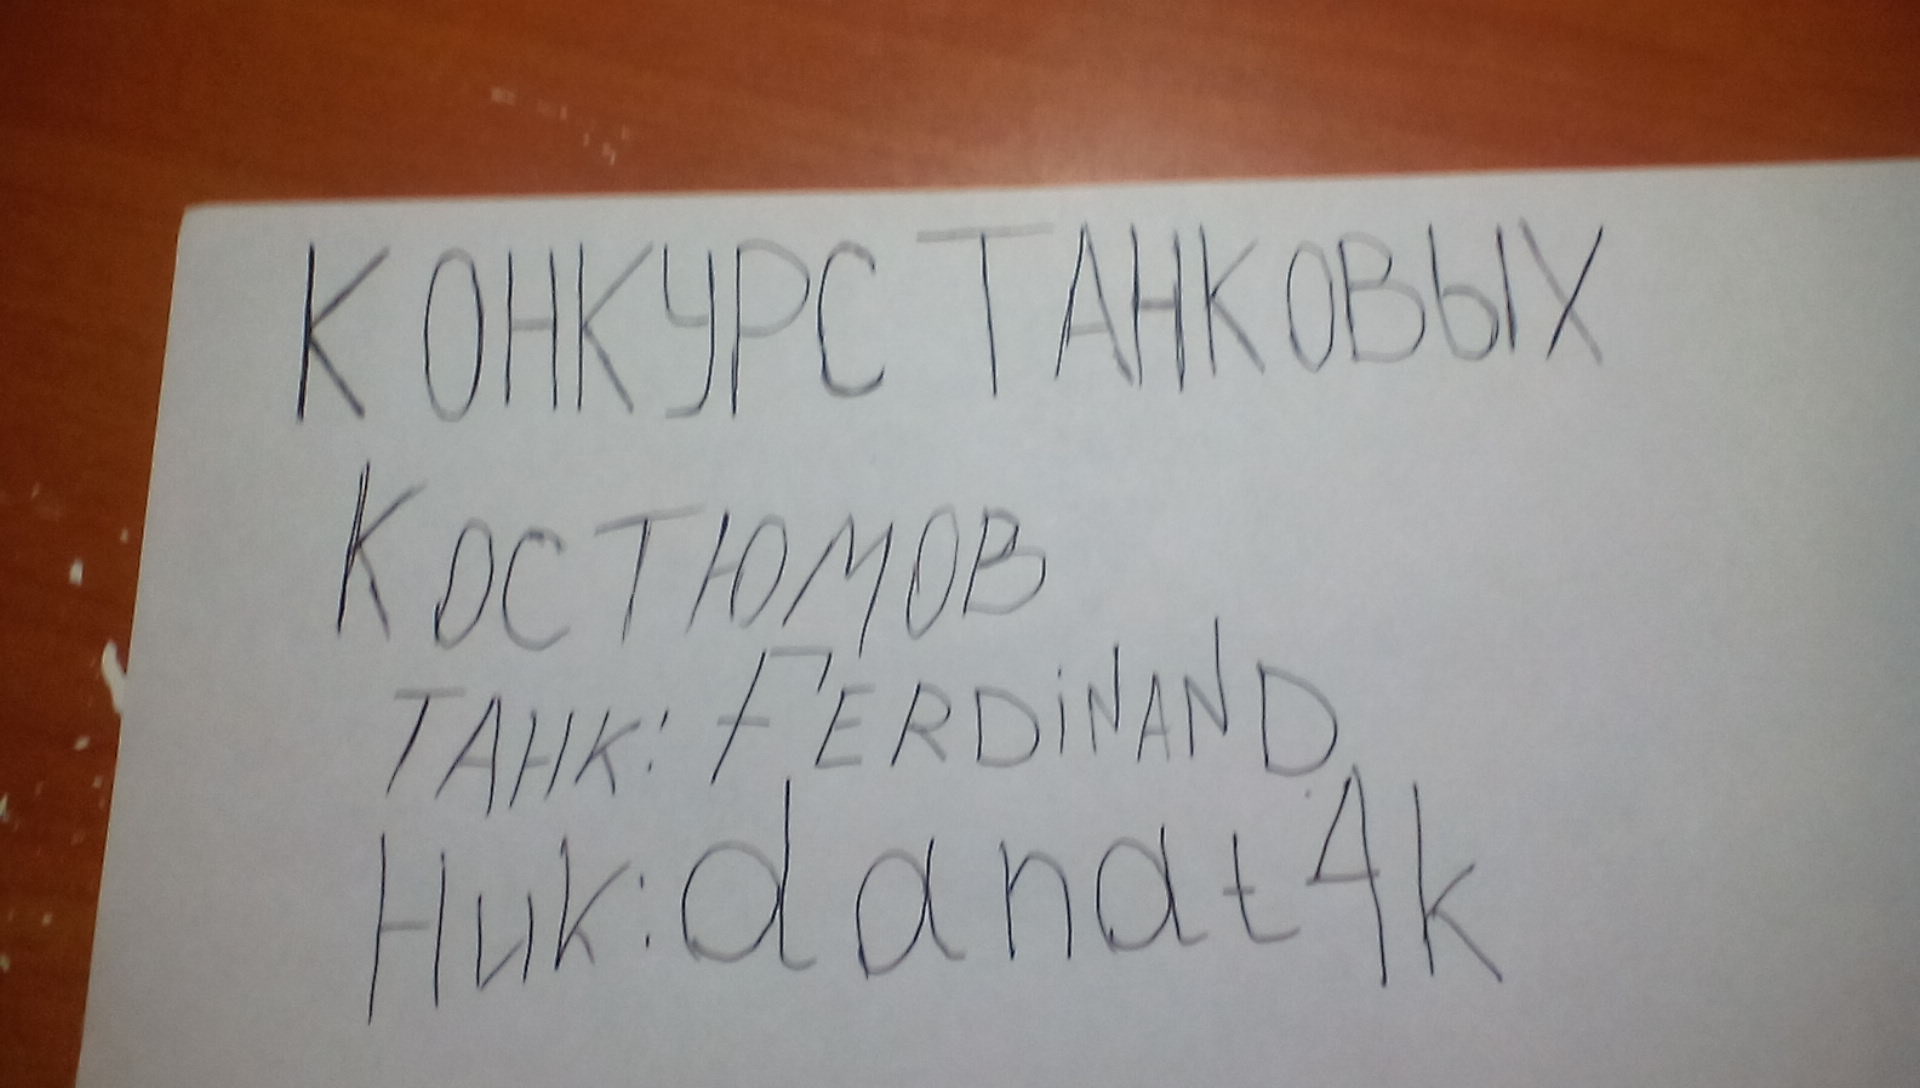 КОНКУРС ТАНКОВЫХ
КОСТЮМОВ
ТАНК: FERDiNAND
Ник: danat4k